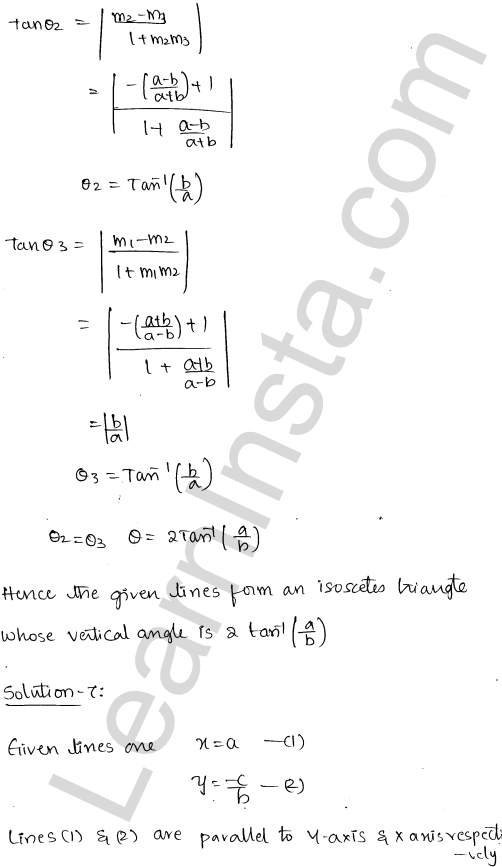 tanθ2 = | m2-m3 / 1+m2m3 |
= | -(a-b/a+b)+1 / 1+ a-b/a+b |
θ2 = Tan⁻¹(b/a)
tanθ3 = | m1-m2 / 1+m1m2 |
= | -(a+b/a-b)+1 / 1+ a+b/a-b |
= |b/a|
θ3 = Tan⁻¹(b/a)
θ2=θ3 θ= 2Tan⁻¹(a/b)
Hence the given lines form an isosceles triangle
whose vertical angle is 2 tan⁻¹(a/b)
Solution-7:
Given lines are x=a -(1)
y=-c/b -(2)
Lines (1) & (2) are parallel to y-axis & x axis respecti
-vely
LearnInsta.com